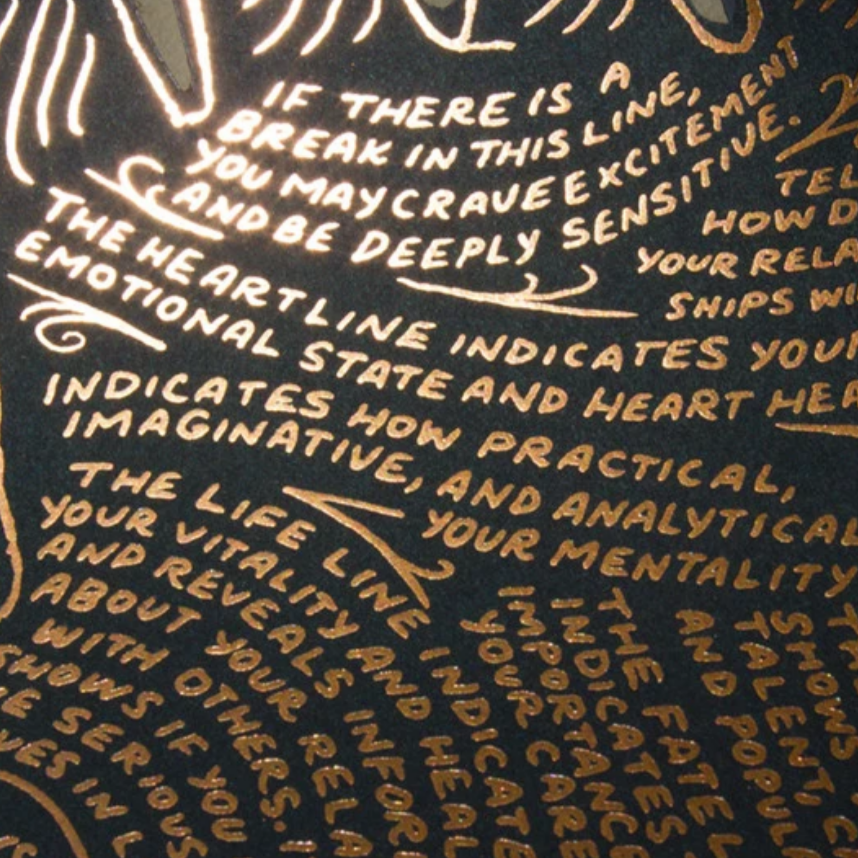 IF THERE IS A
BREAK IN THIS LINE,
YOU MAY CRAVE EXCITEMENT
AND BE DEEPLY SENSITIVE.
TEL
HOW D
YOUR RELA
SHIPS WI
THE HEARTLINE INDICATES YOUR
EMOTIONAL STATE AND HEART HEA
INDICATES HOW PRACTICAL,
IMAGINATIVE, AND ANALYTICAL
YOUR MENTALITY
THE LIFE LINE INDICATE
YOUR VITALITY AND HEAL
AND REVEALS INFOR
ABOUT YOUR RELA
WITH OTHERS. I
SHOWS IF YOU
E SERIOUS
VES IN L
THE FATE L
INDICATES
IMPORTANCE
YOUR CARE
SHOWS
TALENT
AND POPUL